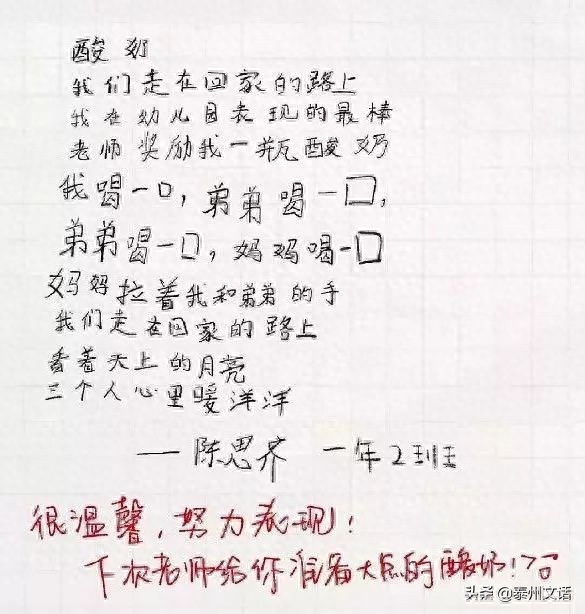 酸奶
我们走在回家的路上
我在幼儿园表现的最棒
老师奖励我一瓶酸奶
我喝一口,弟弟喝一口,
弟弟喝一口,妈妈喝一口
妈妈拉着我和弟弟的手
我们走在回家的路上
看着天上的月亮
三个人心里暖洋洋
——陈思齐 一年2班
很温馨,努力表现!
下次老师给你准备大点的酸奶!
头条@泰州文话